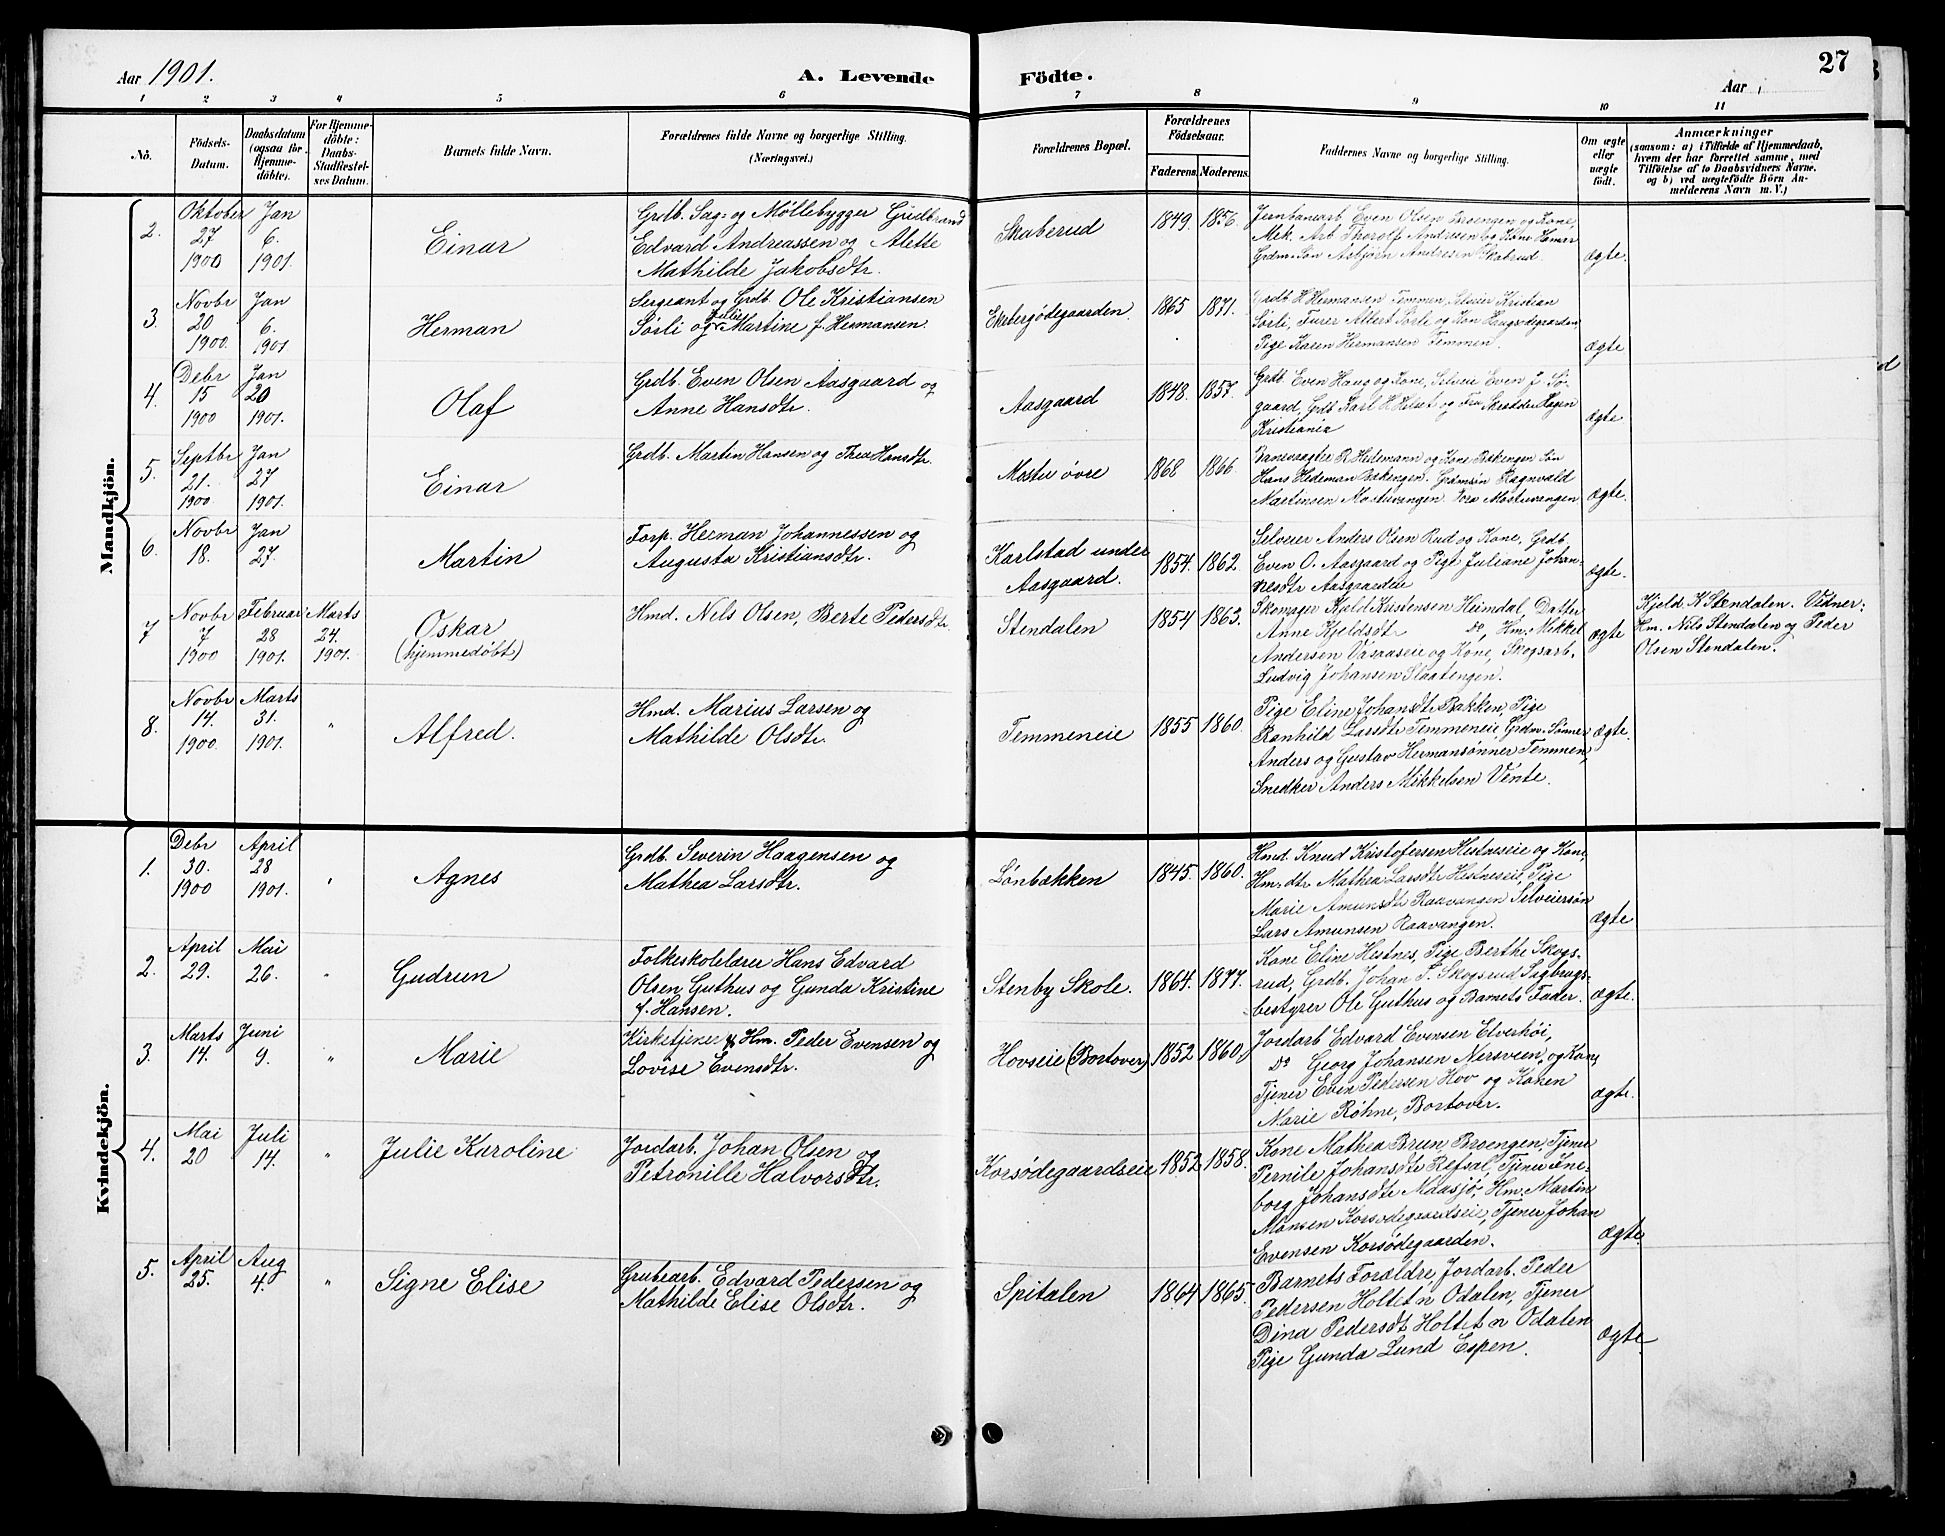 Aar 1901.
A. Levende Födte.
Aar
27
1 2 3 4 5 6 7 8 9 10 11
No.
Födsels-
Datum.
Daabsdatum
(ogsaa for
Hjemme-
döbte).
For Hjemme-
döbte:
Daabs-
Stadfæstel-
ses Datum.
Barnets fulde Navn.
Forældrenes fulde Navne og borgerlige Stilling.
(Næringsvei.)
Forældrenes Bopæl.
Forældrenes
Födselsaar.
Faderens. Moderens.
Faddernes Navne og borgerlige Stilling.
Om ægte
eller
uægte
födt.
Anmærkninger
(saasom: a) i Tilfælde af Hjemmedaab,
hvem der har forrettet samme, med
Tilföielse af to Daabsvidners Navne,
og b) ved uægtefödte Börn An-
melderens Navn m. V.)
Mandkjön.
2.
Oktober
27
1900
Jan
6.
1901.
Einar
Grdb. Sag- og Møllebygger Gudbrand
Edvard Andreassen og Alette
Mathilde Jakobsdtr.
Skaberud
1849. 1856.
Jernbanearb Even Olsen Broengen og Kone,
Mek. Arb Thorolf Andresen og Kone Hamar
Grdm. Søn Asbjørn Andresen Skabrud.
ægte.
3.
Novbr
20
1900.
Jan
6.
1901
Herman
Sergeant og Grdb. Ole Kristiansen
Sørli og Julie Martine f. Hermansen.
Ekebergødegaarden
1865 1871.
Grdb H Hermansen Temmen, Selveier Kristian
Sörli, Furer Albert Sörli og Kon Haugsødegaarden
Pige Karen Hermansen Temmen.
ægte
4.
Debr
15
1900
Jan
20
1901.
Olaf
Grdb. Even Olsen Aasgaard og
Anne Hansdtr.
Aasgaard
1848. 1857.
Grdb Even Haug og Kone, Selveie Even J. Sø-
gaard, Grdb Karl H Helset og Fru Hagen
Kristiania
ægte
5.
Septbr
21.
1900
Jan
27
1901.
Einar
Grdb. Martin Hansen og Thea Hansdtr.
Mostu øvre
1868 1866.
Banevogter R Hedemann og Kone Bækengen Søn
Hans Hedeman Bækengen. Grdmsön Ragnvald
Martinsen Mostuvangen. Tora Mostuvangen
ægte.
6.
Novbr
18.
Jan
27.
Martin
Forp. Herman Johannessen og
Augusta Kristiansdtr.
Karlstad under
Aasgaard.
1854. 1862.
Selveier Anders Olsen Rud og Kone, Grdb.
Even O. Aasgaard og Pige Juliane Johan-
nesdtr Aasgaardeie
ægte.
7
Novbr
7
1900
Februar
28
1901.
Marts
24.
1901.
Oskar
(hjemmedøbt)
Hmd. Nels Olsen, Berte Pedersdtr
Stendalen
1854 1863.
Skomager Kjeld Kristensen Heimdal, Datter
Anne Kjeldsdt Do, Hm. Mikkel
Andersen Vasaaseie og Kone, Skogsarb.
Ludvig Johansen Slaatengen.
ægte
Kjeld K Stendalen. Vidner:
Hm. Nils Stendalen og Peder
Olsen Stendalen.
8.
Novbr
14.
1900
Marts
31.
1901.
"
Alfred.
Hmd. Marius Larsen og
Mathilde Olsdtr.
Temmeneie
1855 1860.
Pige Eline Johansdtr Bakken, Pige
Ranhild Larsdtr Temmeneie, Grdm. Sønner
Anders og Gustav Hermansønner Temmen,
Snedker Anders Mikkelsen Vente.
ægte.
Kvindekjön.
1.
Debr
30.
1900
April
28
1901.
"
Agnes
Grdb. Severin Haagensen og
Mathea Larsdtr.
Lönbækken
1845. 1860.
Hmd. Knud Kristofersen Hestneseie og Kone,
Hm. dtr Mathea Larsdtr Hestneseie, Pige
Marie Amundsdtr Raavangen Selveiersön
Lars Amunsen Raavangen.
ægte
2.
April
29.
Mai
26.
"
Gudrun
Folkeskolelærer Hans Edvard
Olsen Guthus og Gunda Kristine
f. Hansen.
Stenby Skole.
1864. 1877.
Kone Eline Hestnes, Pige Berthe Skogs-
rud, Grdb. Johan P. Skogsrud Sagbrugs-
bestyrer Ole Guthus og Barnets Fader.
ægte.
3.
Marts
14.
Juni
9.
"
Marie
Kirketjener & Hm. Peder Evensen og
Lovise Evensdtr.
Hovseie (Bortover)
1852 1860.
Jordarb Edvard Evensen Elverhöi,
Do Georg Johansen Nersveen, og Kone,
Tjener Even Pedersen Hov og Konen
Marie Røhne, Bortover.
ægte.
4.
Mai
20
Juli
14.
"
Julie Karoline
Jordarb. Johan Olsen og
Petronille Halvorsdtr.
Korsødegaardseie
1852 1858.
Kone Mathea Brun Broengen, Tjener
Pernile Johansdtr Refsal, Tjener Ine-
borg Johansdtr Maasjø, Hm. Martin
Monsen Korsødegaardseie, Tjener Johan
Evensen Korsødegaarden.
ægte.
5.
April
25.
Aug
4.
"
Signe Elise
Grubearb. Edvard Pedersen og
Mathilde Elise Olsdtr.
Spitalen
1864 1865.
Barnets Forældre, Jordarb. Peder
Pedersen Holtet n Odalen, Tjener
Dina Pedersdt Holtet n Odalen
Pige Gunda Lund Espen.
ægte